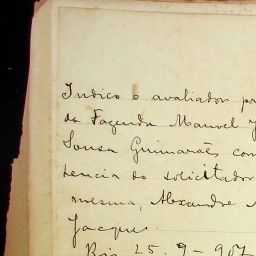 Indico o avaliador pr
da Fazenda Manoel J
Sousa Guimarães com
tencia do solicitador
mesma, Alexandre
Jacques.
Rio, 25-9-907